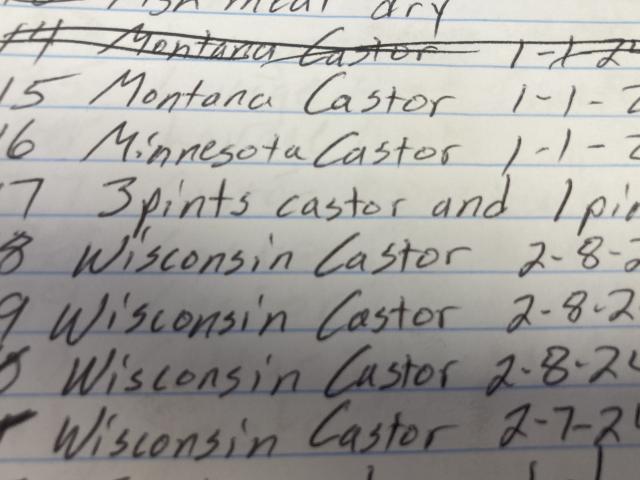 fish meal dry
14 Montana Castor 1-1-24
15 Montana Castor 1-1-2
16 Minnesota Castor 1-1-2
17 3 pints castor and 1 pin
8 Wisconsin Castor 2-8-2
9 Wisconsin Castor 2-8-2
Wisconsin Castor 2-8-24
Wisconsin Castor 2-7-24